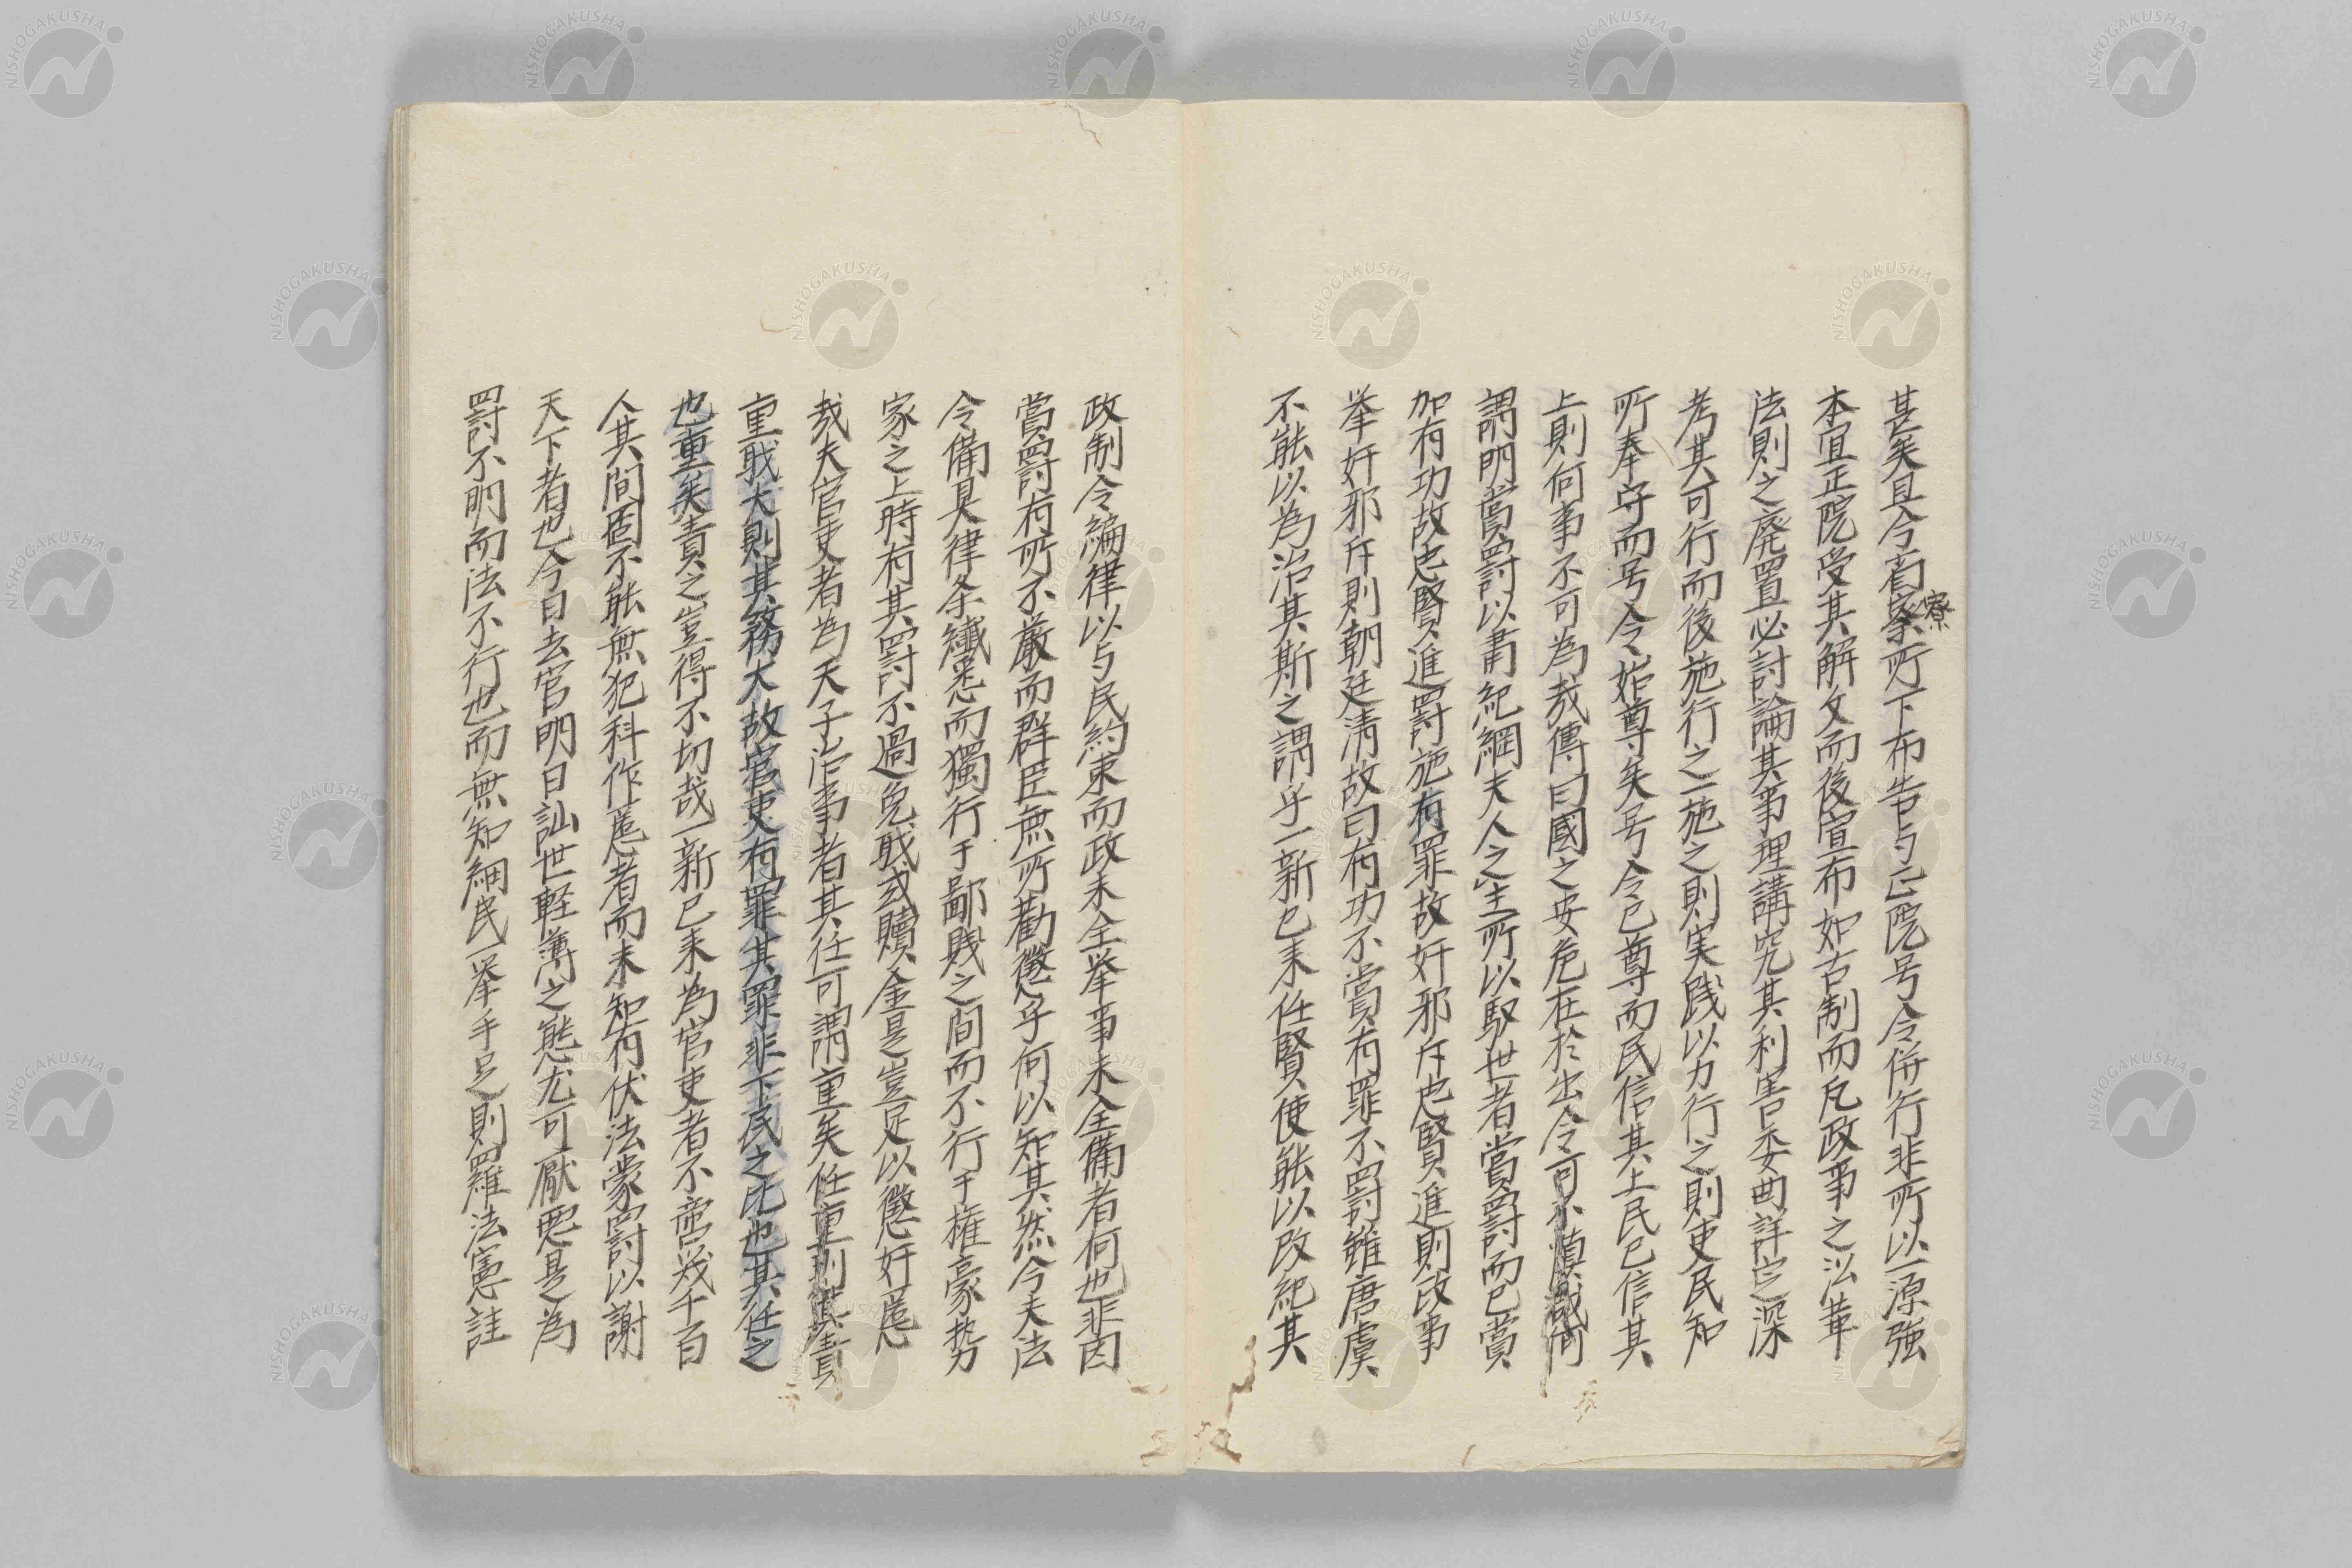 甚矣且今省寮所下布告与正院号令併行非所以一源強
本宜正院受其解文而後宣布如古制而凡政事之沿革
法則之廃置必討論其事理講究其利害委曲詳定深
考其可行而後施行之一施之則実践以力行之則吏民知
所奉守而号令始尊矣号令已尊而民信其上民已信其
上則何事不可為哉傳曰國之安危在於出令可不慎哉何
謂明賞罸以粛紀綱夫人之主所以馭世者賞罸而已賞
加有功故忠賢進罸施有罪故奸邪斥忠賢進則政事
挙奸邪斥則朝廷清故曰有功不賞有罪不罸雖唐虞
不能以為治其斯之謂乎一新已来任賢使能以改紀其
政制令編律以与民約束而政未全挙事未全備者何也非因
賞罸有所不厳而群臣庶所勸懲乎何以知其然今夫法
令備具律条纎悉而獨行于鄙賎之間而不行于権豪势
家之上時有其罸不過免职或贖金是豈足以懲奸慝
哉夫官吏者為天子治事者其任可謂重矣任重則其責
重职大則其務大故官吏有罪其罪非下民之比也其任之
也重矣責之豈得不切哉一新已来為官吏者不啻幾千百
人其間固不能無犯科作慝者而未知有伏法蒙罸以謝
天下者也今日去官明日訕世軽薄之態尤可厭悪是為
罸不明而法不行也而無知細民一挙手足則羅法憲註